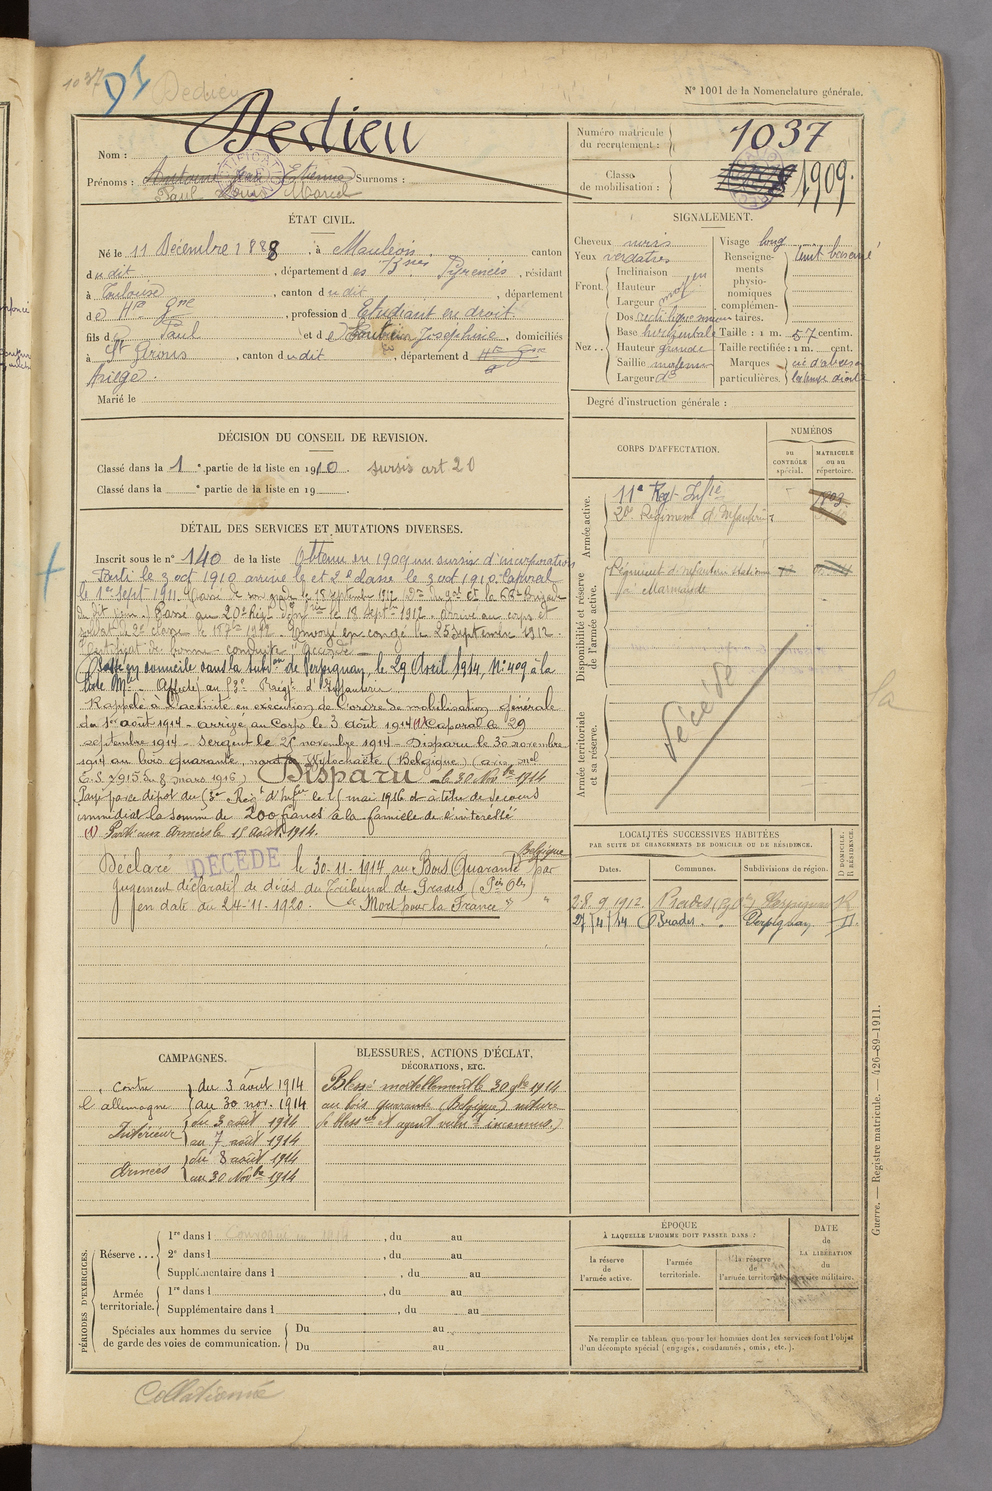 1037
DI
Dedieu
N° 1001 de la Nomenclature générale.
Nom : Dedieu
Prénoms : Antoine Jean Etienne Surnoms :
Paul Louis Marcel
Numéro matricule du recrutement : 1037
Classe de mobilisation : 1909.
ÉTAT CIVIL.
Né le 11 Décembre 1888, à Mauléon canton
dudit, département des Bses Pyrénées, résidant
à Toulouse, canton dudit, département
de Hte Gne, profession d'Etudiant en droit
fils de Paul et de Joséphine, domiciliés
à St Girons, canton dudit, département d Hte Gne
Ariège.
Marié le
SIGNALEMENT.
Cheveux noirs
Yeux verdâtres
Front. Inclinaison moyen
Hauteur
Largeur moy
Nez.. Dos rectiligne
Base horizontale
Hauteur grande
Saillie moyenne
Largeur do
Visage long
Renseignements physionomiques complémentaires.
Taille : 1 m. 57 centim.
Taille rectifiée : 1 m. cent.
Marques particulières.
Degré d'instruction générale :
DÉCISION DU CONSEIL DE REVISION.
Classé dans la 1e partie de la liste en 1910. sursis art 20
Classé dans la e partie de la liste en 19
DÉTAIL DES SERVICES ET MUTATIONS DIVERSES.
Inscrit sous le n° 140 de la liste Obtenu en 1909 un sursis d'incorporation
Parti le 3 oct 1910 arrivé le et 2e classe le 3 oct 1910. Caporal
le 1er Sept 1911.
Passé au 20e Régt d'Infie le 18 Septbre 1912. Arrivé au corps et
soldat de 2e classe le Envoyé en congé le 25 Septembre 1912.
Certificat de bonne conduite "Accordé"
Passe en domicile dans la subdon de Perpignan, le 29 Avril 1914, N° 409 à la
liste Mle. Affecté au 53e Régt d'Infanterie
Rappelé à l'activité en exécution de l'ordre de mobilisation générale
du 1er août 1914 - arrivé au Corps le 3 Août 1914 (1) Caporal le 29
septembre 1914 - Sergent le 25 novembre 1914 - Disparu le 30 novembre
1914 au bois quarante, nord de Wytschaëte (Belgique) (avis mel
E.S. 2915 du 8 mars 1916) Disparu le 30 Novbre 1914
Payé par ce dépôt du 53e Régt d'Infie le mai 1916 à titre de secours
immédiat la somme de 200 francs à la famille de l'intéressé
(1) Parti aux Armées le 18 août 1914.
Déclaré DÉCÉDÉ le 30-11-1914 au Bois Quarante Belgique par
jugement déclaratif de décès du Tribunal de Prades (Pées Oles)
en date du 24-11-1920. "Mort pour la France"
CORPS D'AFFECTATION.
NUMÉROS
au CONTRÔLE spécial.
MATRICULE ou au répertoire.
Armée active.
11e Régt Infie
20e Régiment d'Infanterie
Disponibilité et réserve de l'armée active.
Régiment d'infanterie
Marmande
Armée territoriale et sa réserve.
décédé
LOCALITÉS SUCCESSIVES HABITÉES
PAR SUITE DE CHANGEMENTS DE DOMICILE OU DE RÉSIDENCE.
Dates. Communes. Subdivisions de région. D DOMICILE. R RÉSIDENCE.
28.9.1912. Prades Perpignan R
27/4/14 Prades. Perpignan D.
CAMPAGNES.
contre l'allemagne du 3 août 1914
au 30 nov. 1914
Intérieur du 3 août 1914
au 7 août 1914
Armées du 8 août 1914
au 30 Novbre 1914
BLESSURES, ACTIONS D'ÉCLAT, DÉCORATIONS, ETC.
Blessé mortellement le 30 9bre 1914
au bois quarante (Belgique) nature
de blessure et agent vuln. inconnus.)
PÉRIODES D'EXERCICES.
Réserve ... 1re dans l , du au
2e dans l , du au
Supplémentaire dans l , du au
Armée territoriale. 1re dans l , du au
Supplémentaire dans l , du au
Spéciales aux hommes du service de garde des voies de communication. Du au
Du au
ÉPOQUE
À LAQUELLE L'HOMME DOIT PASSER DANS :
la réserve de l'armée active.
l'armée territoriale.
la réserve de l'armée territoriale.
DATE de LA LIBÉRATION du service militaire.
Ne remplir ce tableau que pour les hommes dont les services font l'objet
d'un décompte spécial (engagés, condamnés, omis, etc.).
Guerre. — Registre matricule. — 426-89-1911.
Collationné